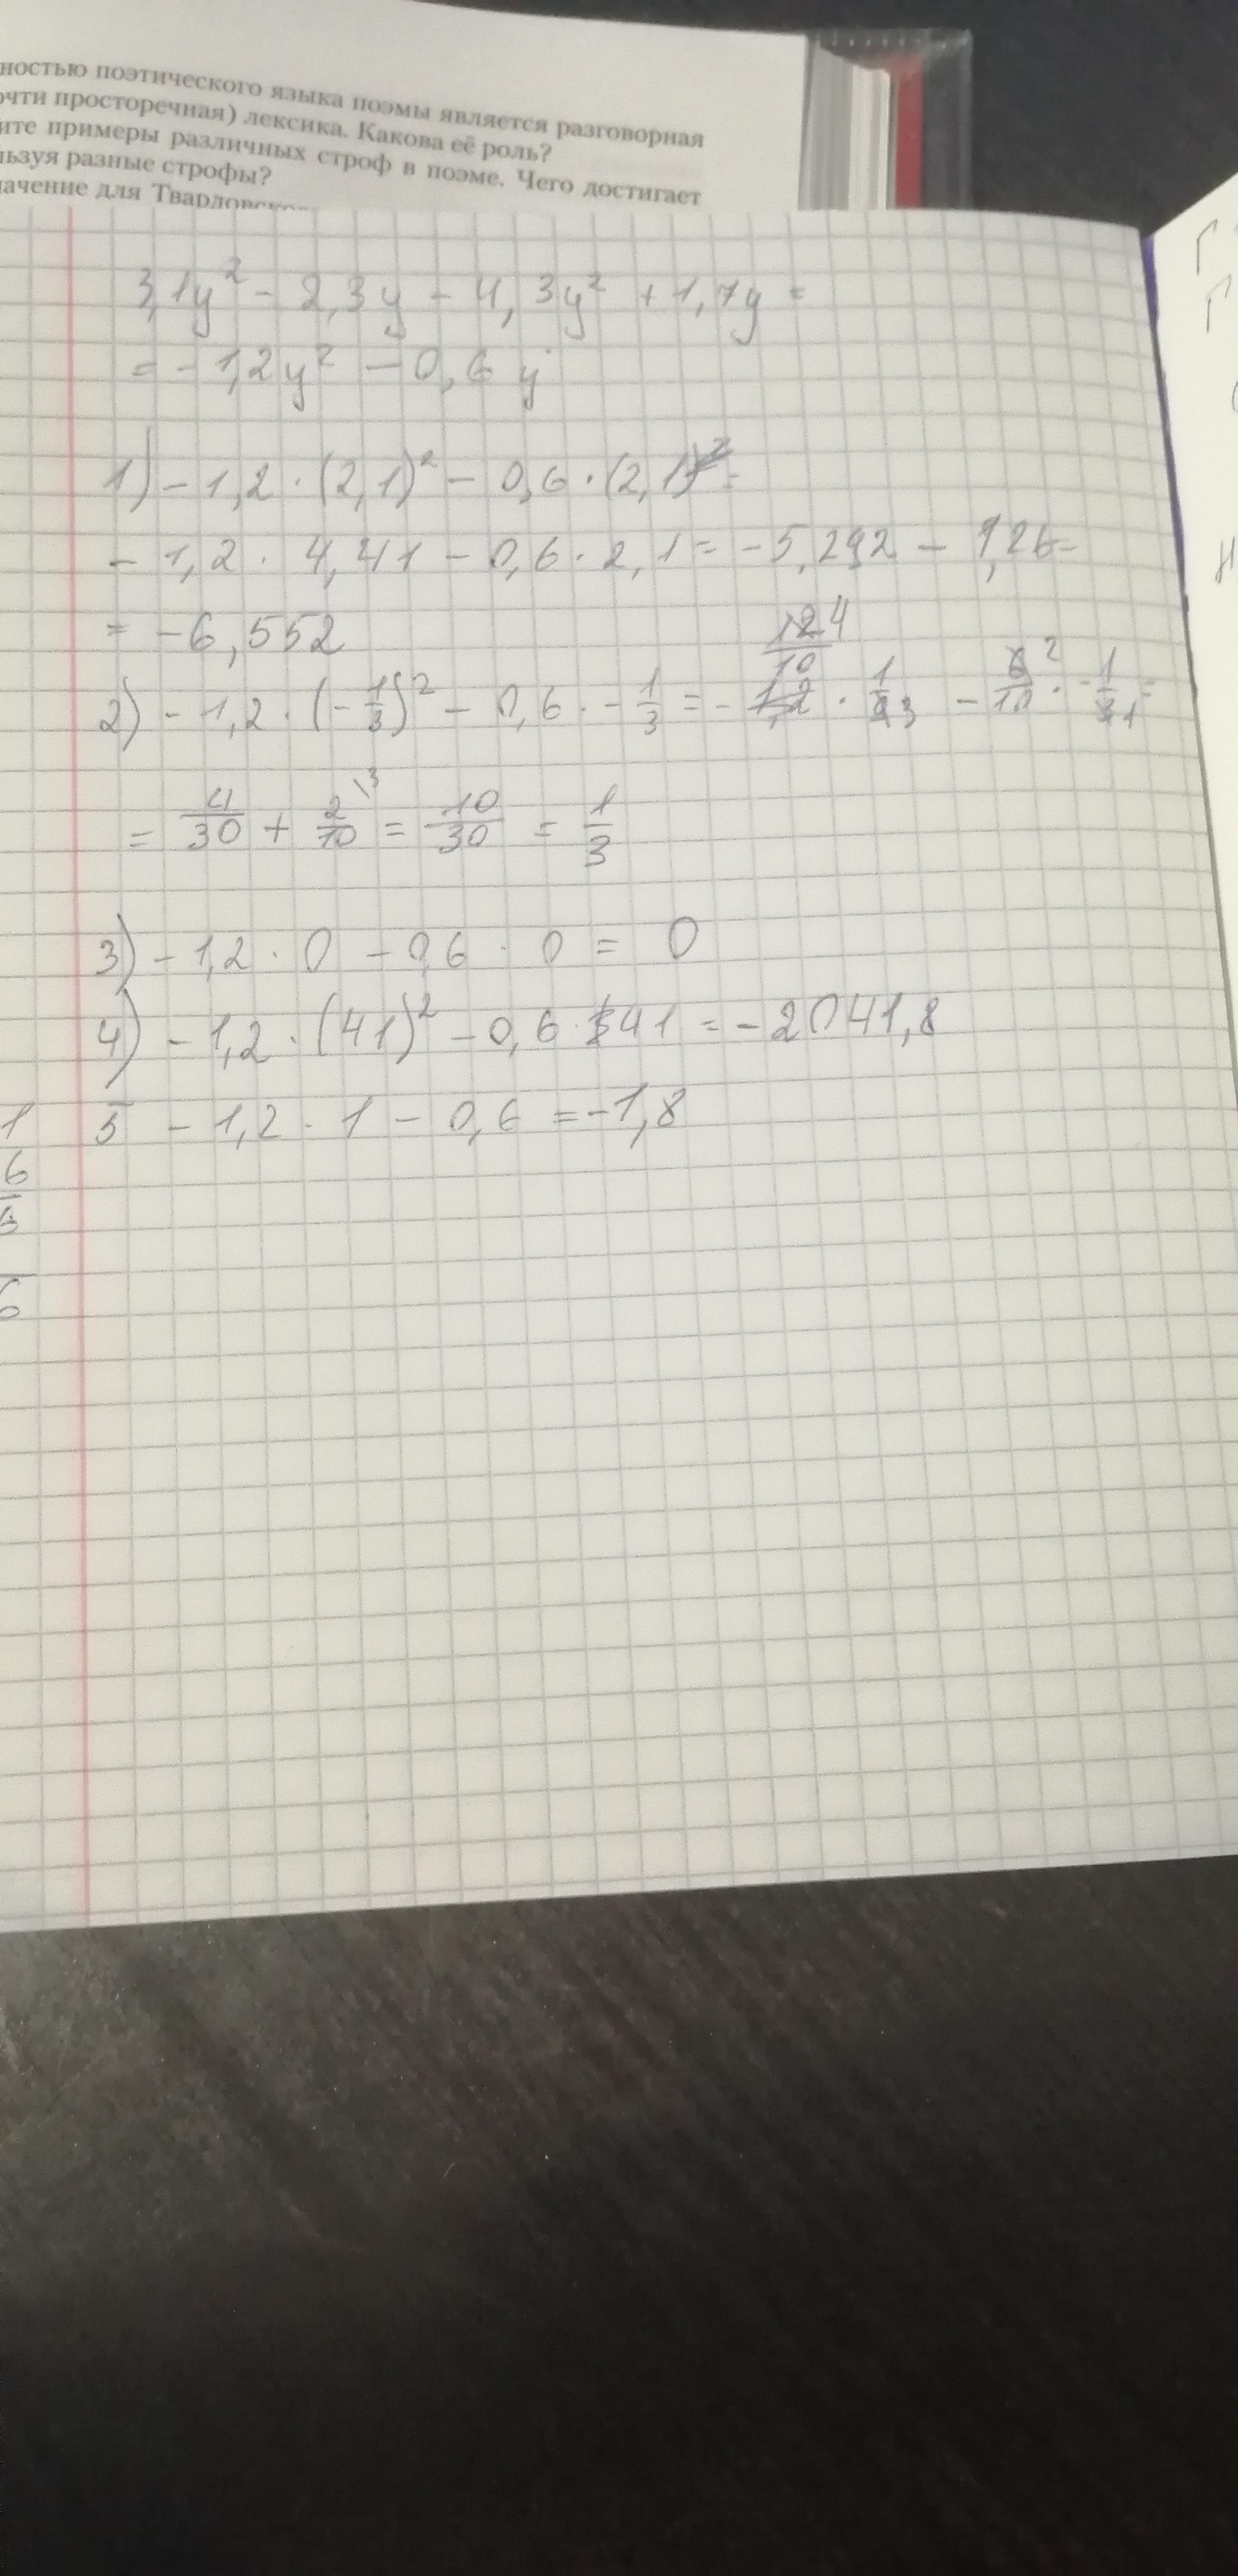 ностью поэтического языка поэмы является разговорная
очти просторечная) лексика. Какова её роль?
ите примеры различных строф в поэме. Чего достигает
льзуя разные строфы?
ачение для Твардовско
3,1y² - 2,3y - 4,3y² + 1,7y =
= - 1,2y² - 0,6y
1) - 1,2 · (2,1)² - 0,6 · (2,1)² =
- 1,2 · 4,41 - 0,6 · 2,1 = - 5,292 - 1,26 =
= - 6,552
2) - 1,2 · (- 1/3)² - 0,6 · - 1/3 = - 1,2 12/10 4 · 1/9 3 - 6/10 2 · - 1/3 1 =
= 4/30 + 2/10 \3 = 10/30 = 1/3
3) - 1,2 · 0 - 0,6 · 0 = 0
4) - 1,2 · (41)² - 0,6 · 41 = - 2041,8
5 - 1,2 · 1 - 0,6 = - 1,8
1
6
6